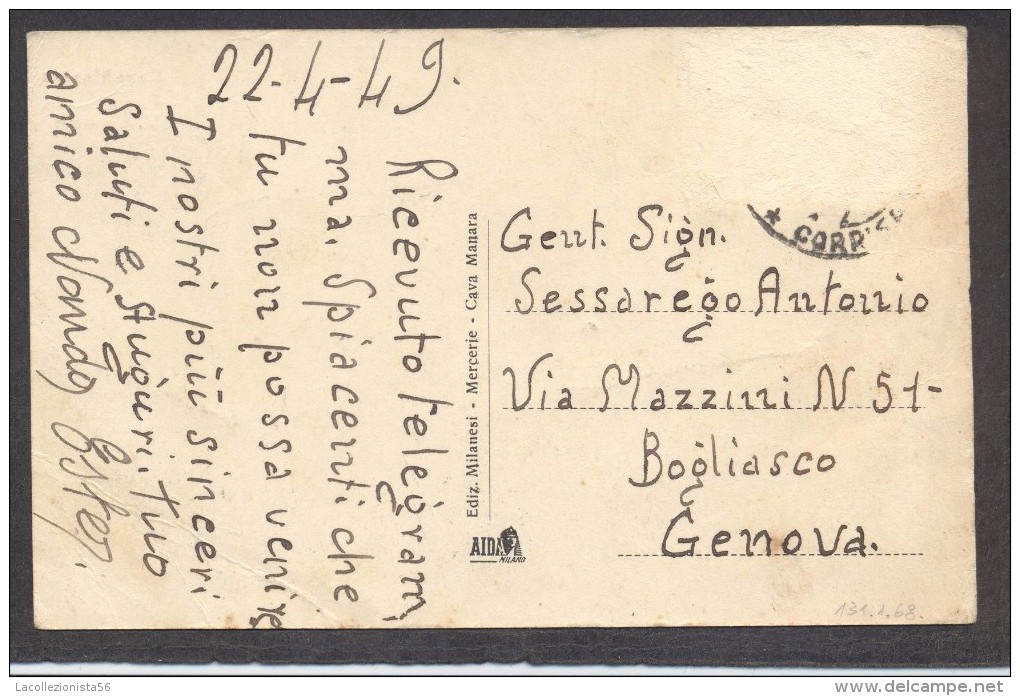 22-4-49.
Ricevuto telegram,
ma. Spiacenti che
tu non possa venire
I nostri più sinceri
Saluti e Auguri. Tuo
amico Nando Ester.
Ediz. Milanesi - Mercerie - Cava Manara
AIDA
MILANO
CORR
Gent. Sign.
Sessarego Antonio
Via Mazzini N 51-
Bogliasco
Genova.
131.1.68.
Lacollezionista56
delcampe.net